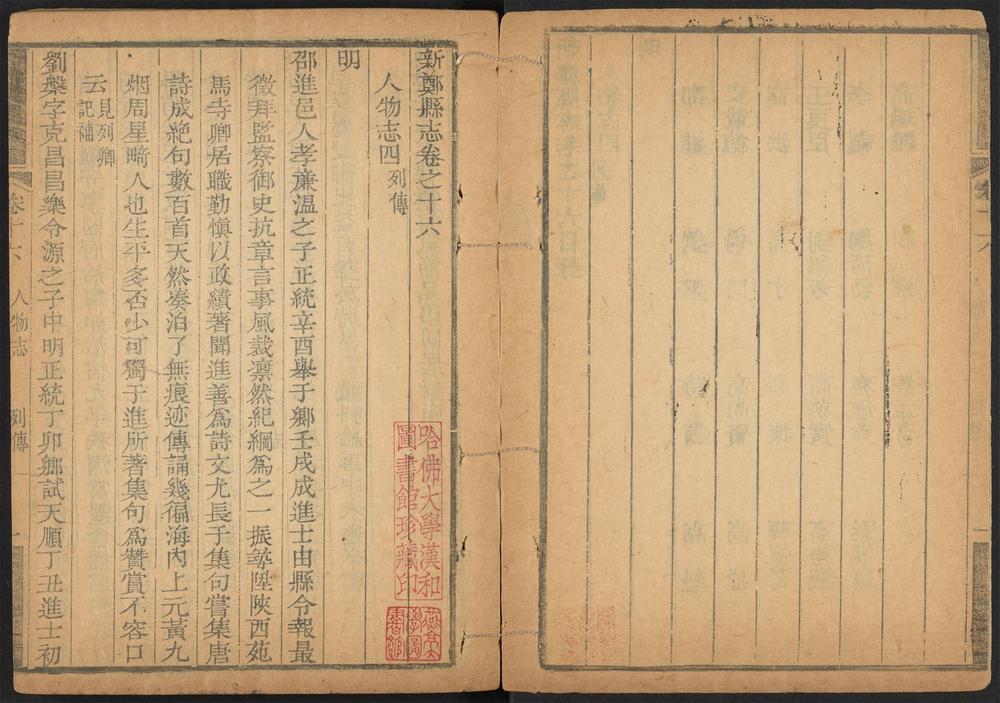 新鄭縣志卷之十六
人物志四列傳
明
邵進邑人孝廉溫之子正統辛酉舉于鄉壬戌成進士由縣令報最
徵拜監察御史抗章言事風裁凛然紀綱爲之一振等陞陜西苑
馬寺卿居職勤愼以政績著聞進善爲詩文尤長于集句嘗集唐
詩成絶句數百首天然湊泊了無痕迹傳誦幾徧海內上元黃九
烟周星畸人也生平多否少可獨于進所著集句爲贊賞不容口
云見列卿記補
劉槃字克昌昌樂令源之子中明正統丁卯鄉試天順丁丑進士初
卷十六
人物志
列傳
一
哈佛大學漢和圖書館珍藏印